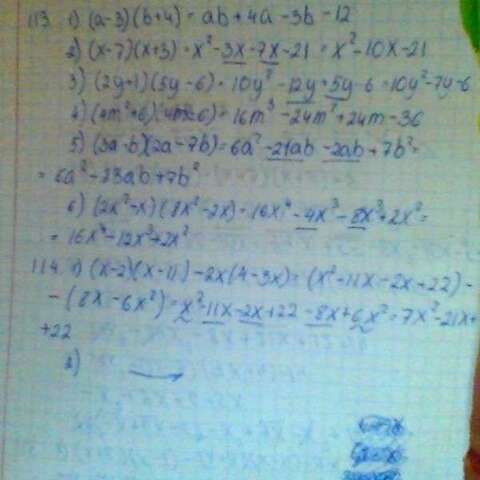 113. 1) (a-3)(b+4) = ab + 4a - 3b - 12
2) (x-7)(x+3) = x² - 3x - 7x - 21 = x² - 10x - 21
3) (2y+1)(5y-6) = 10y² - 12y + 5y - 6 = 10y² - 7y - 6
4) (4m²+6)(4m-6) = 16m³ - 24m² + 24m - 36
5) (3a-b)(2a-7b) = 6a² - 21ab - 2ab + 7b² =
= 6a² - 23ab + 7b²
6) (2x²-x)(8x²-2x) = 16x⁴ - 4x³ - 8x³ + 2x² =
= 16x⁴ - 12x³ + 2x²
114. 1) (x-2)(x-11) - 2x(4-3x) = (x² - 11x - 2x + 22) -
- (8x - 6x²) = x² - 11x - 2x + 22 - 8x + 6x² = 7x² - 21x +
+ 22
2)